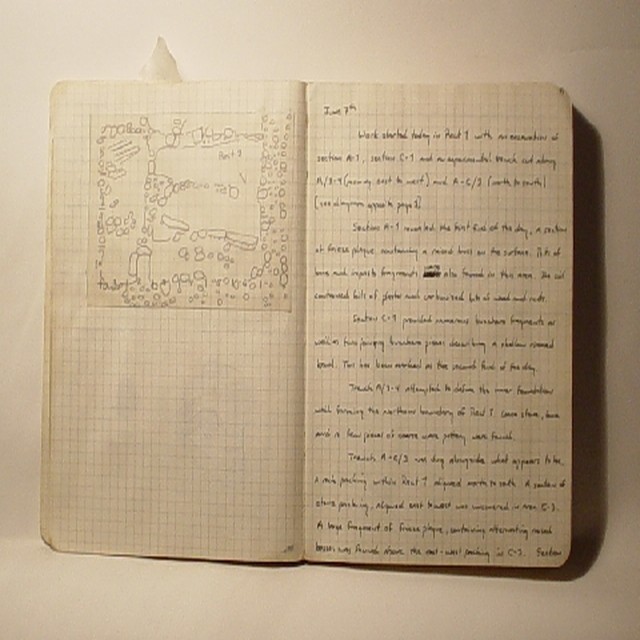 Rect 1
June 7th
Work started today in Rect 1 with an excavation of
section A-1, section C-1 and an experimental trench cut along
A/3-4 (running east to west) and A-C/3 (north to south)
[see diagram opposite page]
Section A-1 revealed the first find of the day, a section
of frieze plaque containing a raised boss on the surface. Bits of
bone and fragments also found in this area. The soil
contained bits of plaster and carbonized bits of wood and nuts.
Section C-1 provided numerous fragments as
well as two joining pieces describing a shallow
bowl. This has been marked as the second find of the day.
Trench A/3-4 attempted to define the inner foundation
wall forming the northern boundary of Rect 1. Loose stone, bone
and a few pieces of coarse ware pottery were found.
Trench A-C/3 was dug alongside what appears to be
a packing within Rect 1 aligned north to south. A section of
stone packing, aligned east to west was uncovered in area C-3.
A large fragment of frieze plaque, containing alternating raised
bosses was found above the east-west packing in C-3. Section